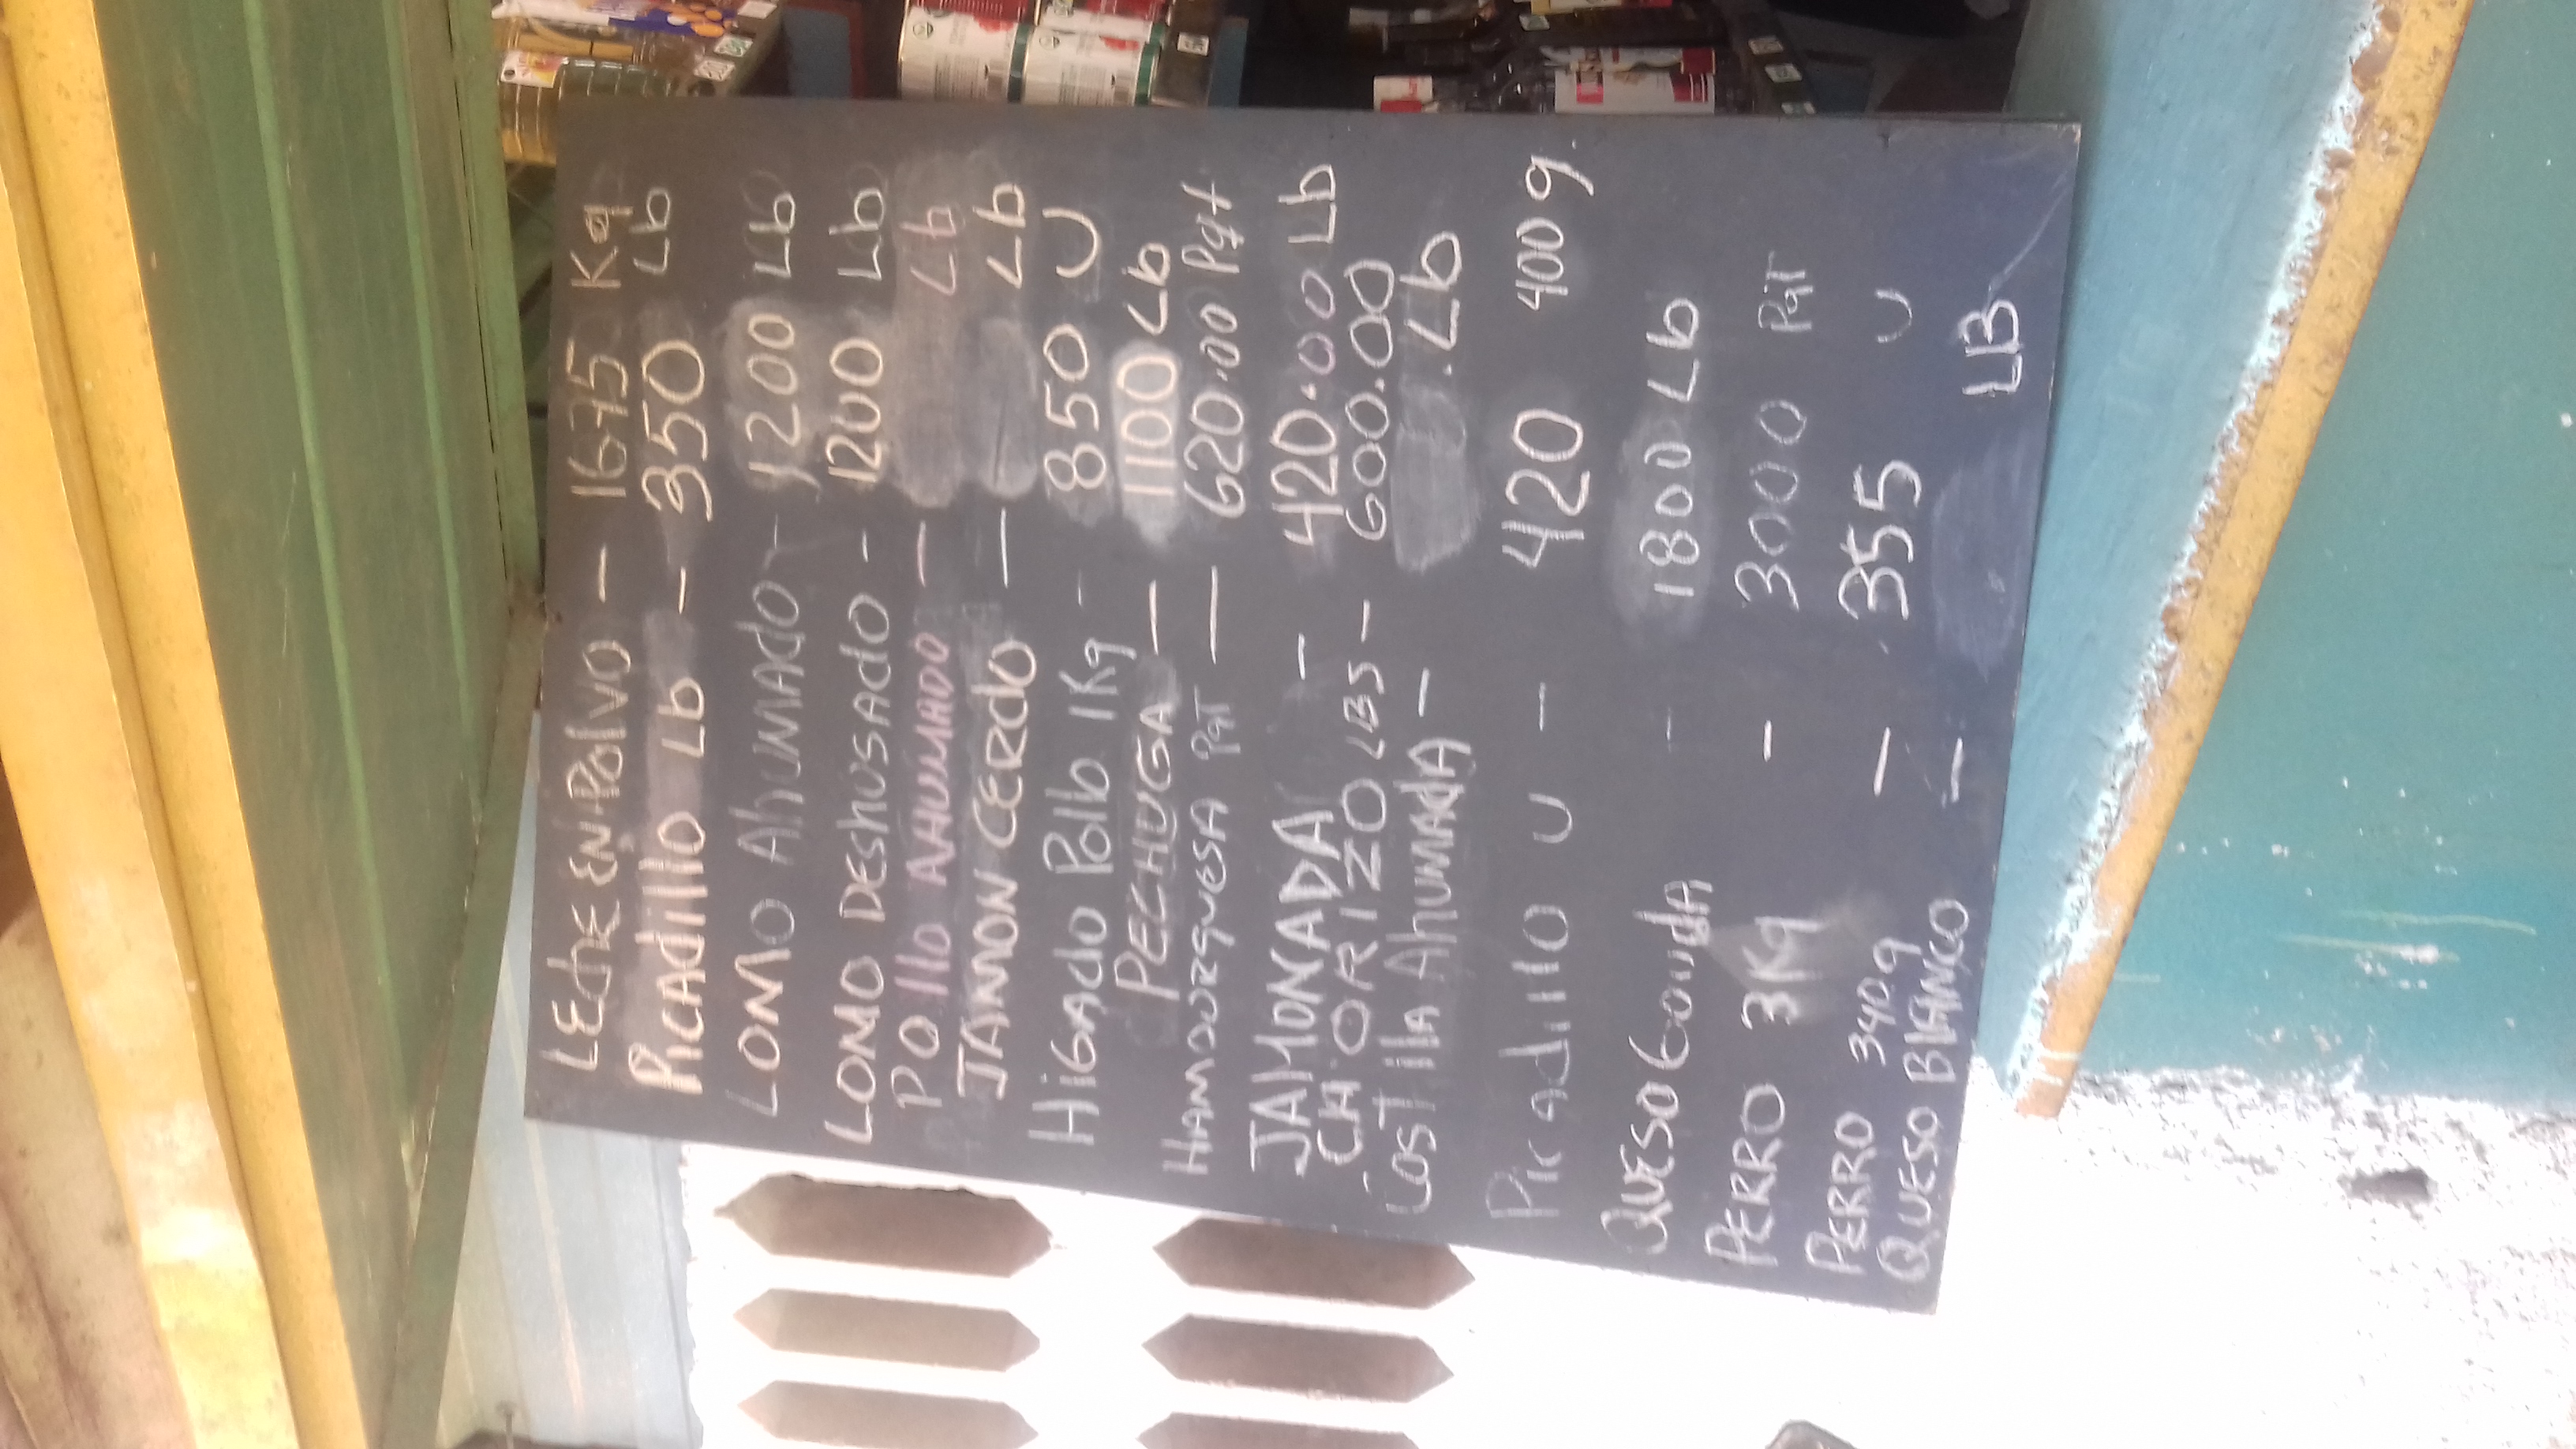 LEchE EN Polvo - 1675 Kg
PicAdillo Lb - 350 Lb
LOMO AhUMAdO - 1200 Lb
LOMO DEShUSAdO - 1200 Lb
POllO AHUMADO - Lb
JAMON CERdO - Lb
HiGAdo Pollo 1Kg - 850 U
PECHUGA - 1100 Lb
HAMBURgUESA PqT - 620.00 Pqt
JAMONADA - 420.00 Lb
CHORIZO LBS - 600.00
COSTillA AhUMAdA - . Lb
PicAdillO U - 420 400 g.
QUESO GoudA - 1800 Lb
PERRO 3Kg - 3000 PqT
PERRO 340g - 355 U
QUESO BlANCO - LB